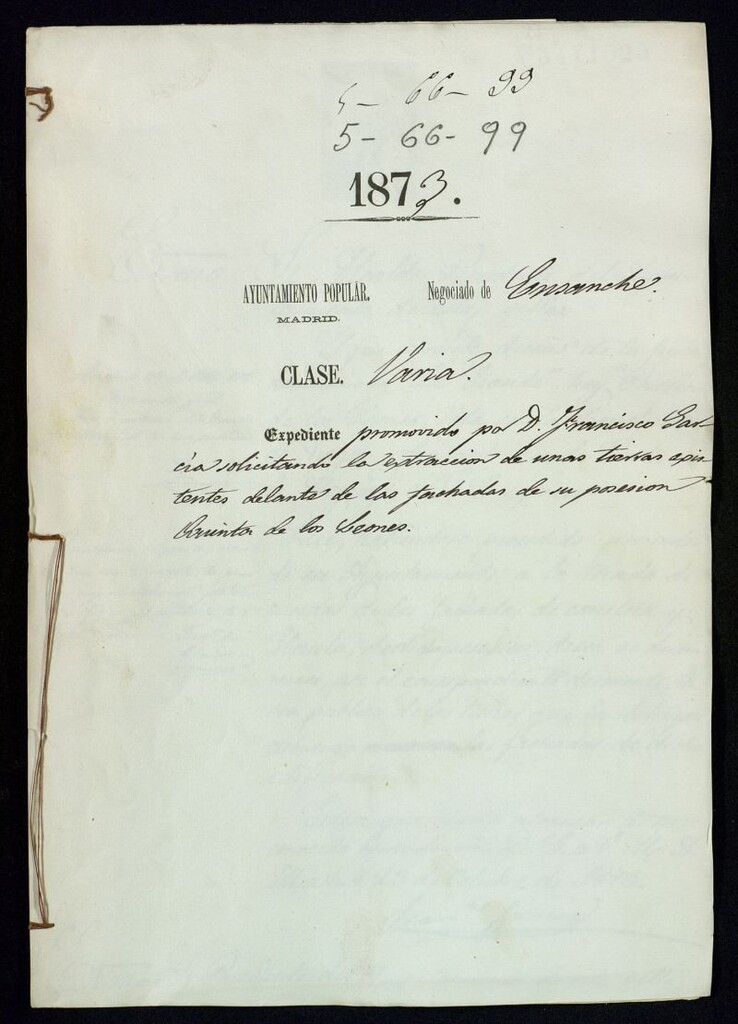 5- 66- 99
5- 66- 99
1873.
AYUNTAMIENTO POPULAR. Negociado de Ensanche.
MADRID.
CLASE. Varia.
Expediente promovido por D. Francisco Gar-
cia solicitando la extraccion de unas tierras exis-
tentes delante de las fachadas de su posesion
Quinta de los Leones.